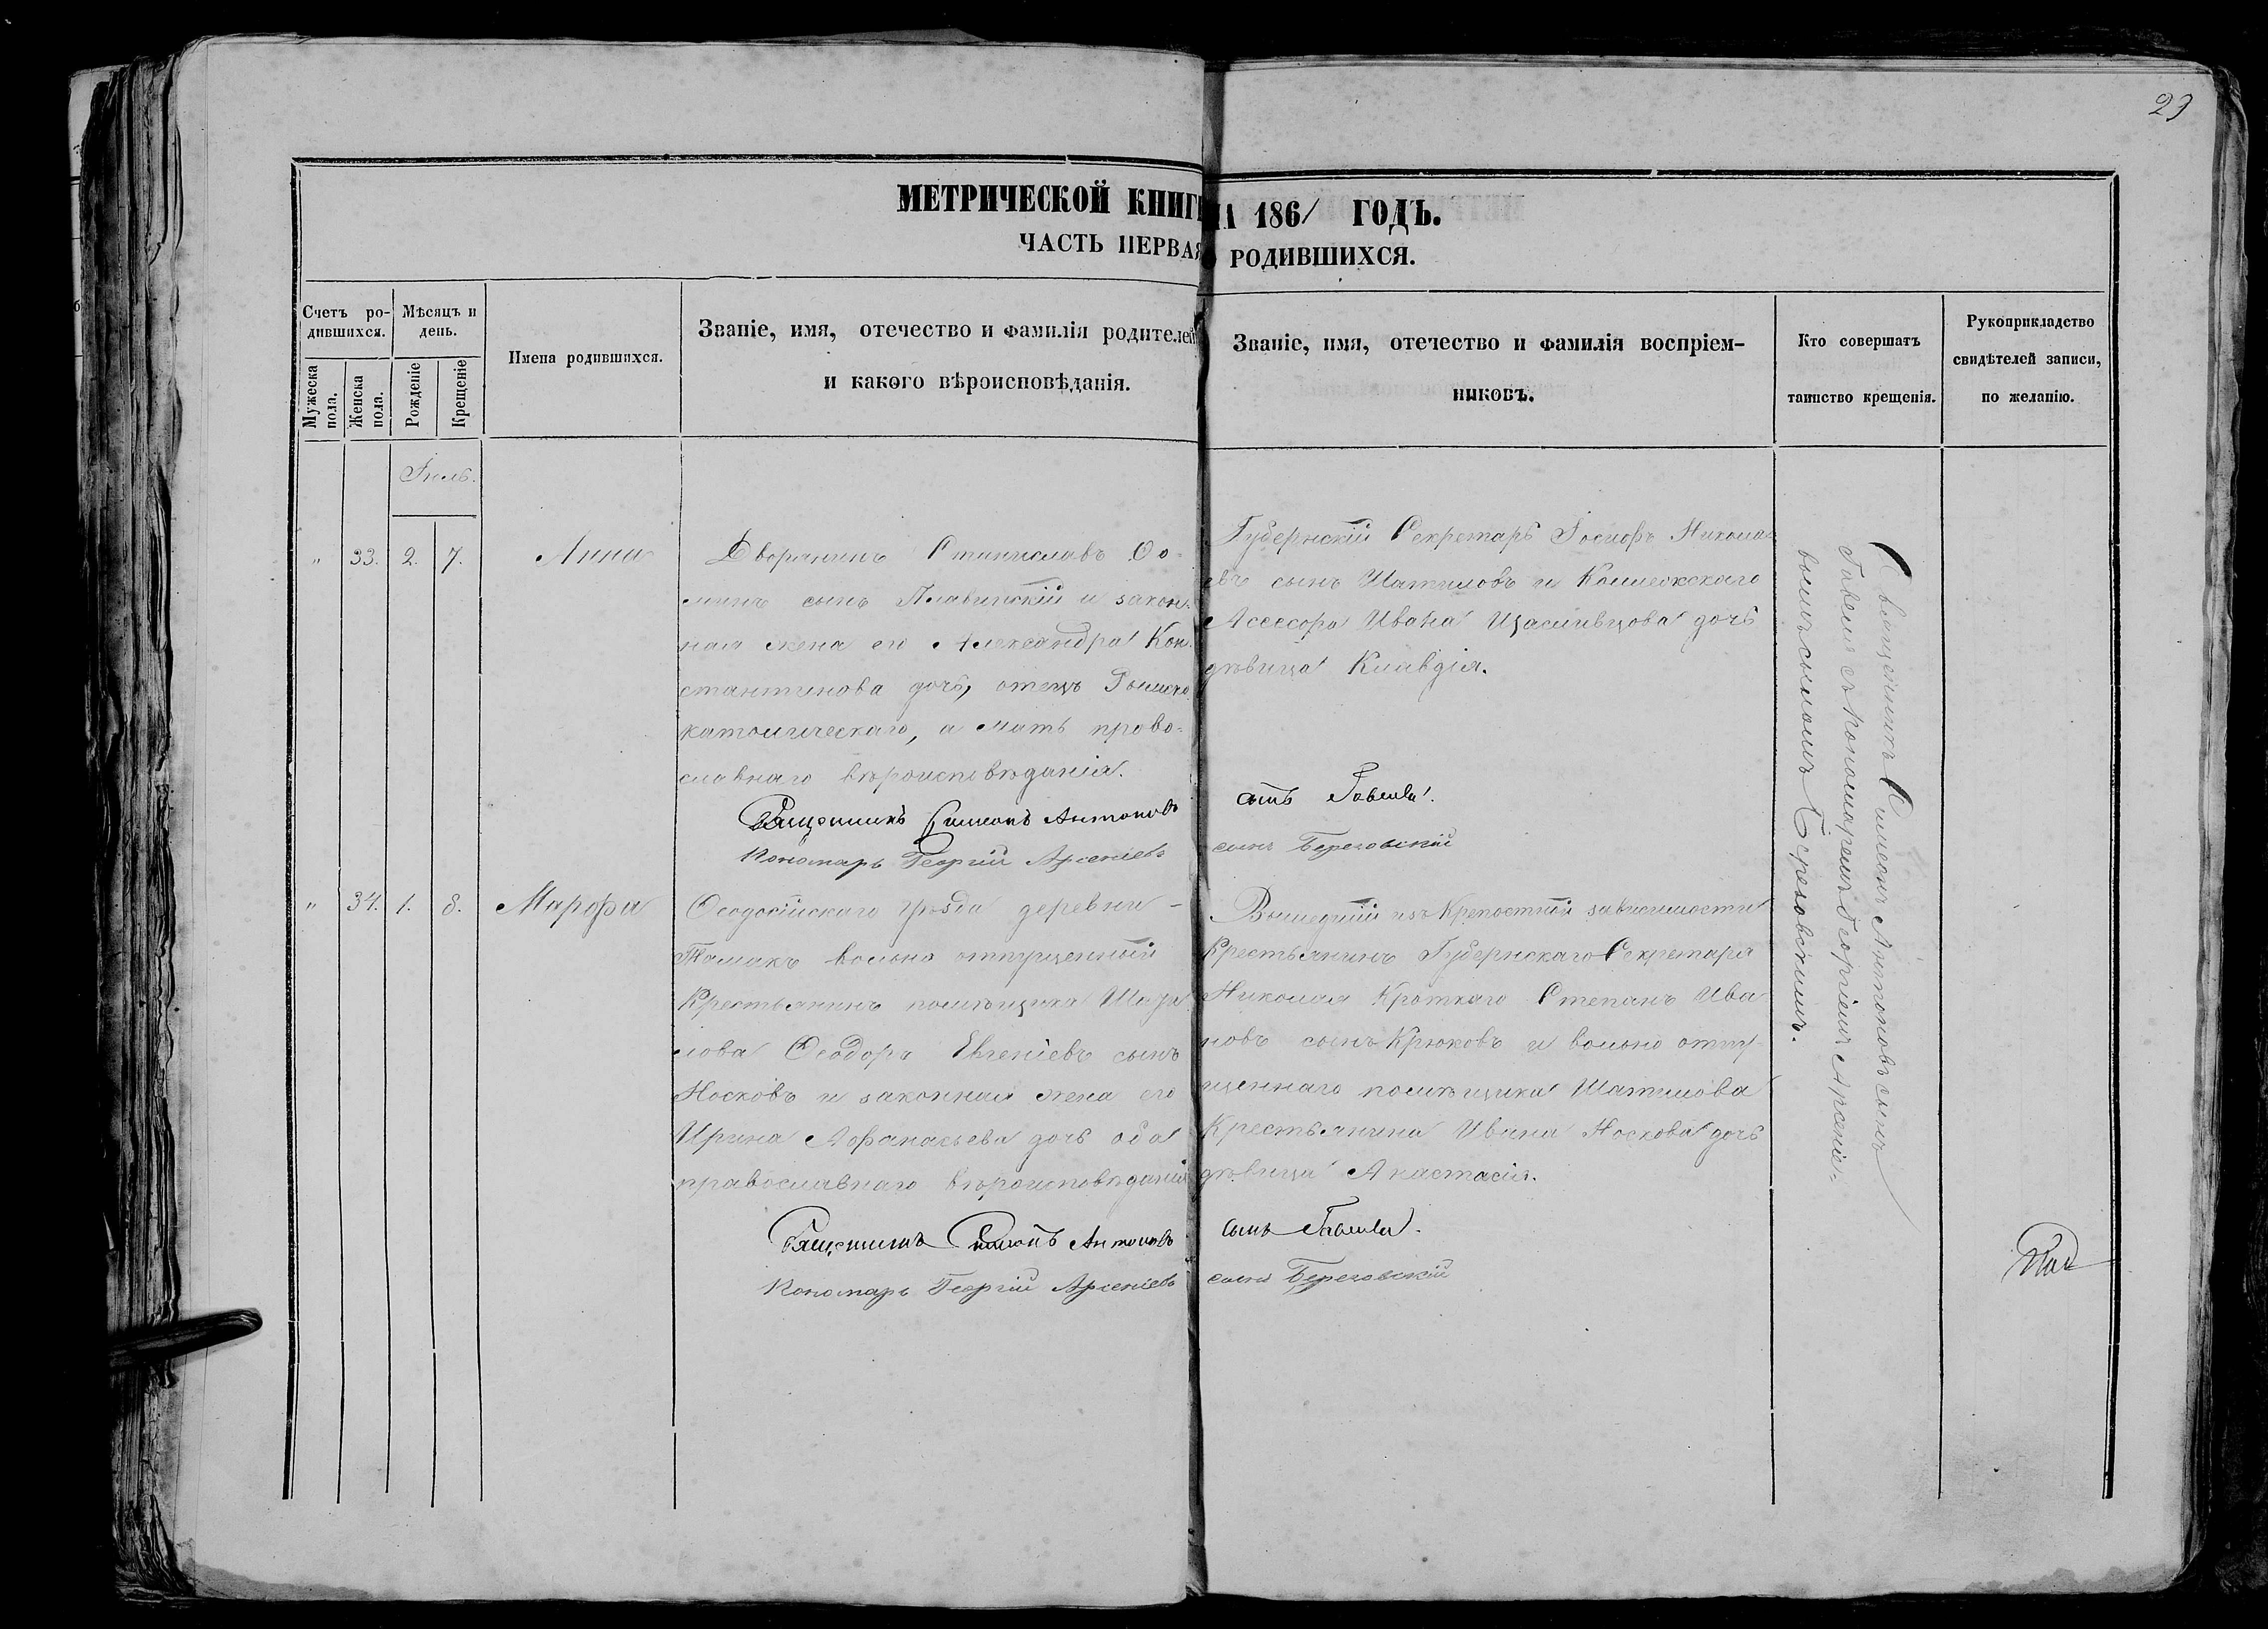 23
МЕТРИЧЕСКОЙ КНИГИ НА 1861 ГОДЪ.
ЧАСТЬ ПЕРВАЯ О РОДИВШИХСЯ.
Счетъ ро-
дившихся.
Мужеска пола.
Женска пола.
Мѣсяцъ и
день.
Рожденіе
Крещеніе
Имена родившихся.
Званіе, имя, отечество и фамилія родителей
и какого вѣроисповѣданія.
Званіе, имя, отечество и фамилія воспріем-
никовъ.
Кто совершатъ
таинство крещенія.
Рукоприкладство
свидѣтелей записи,
по желанію.
Іюль.
" 33. 2. 7. Анна
Дворянинъ Станиславъ Ѳо-
минъ сынъ Плавинскій и закон-
ная жена его Александра Кон-
стантинова дочь, отецъ Римско
католическаго, а мать право-
славнаго вѣроисповѣданія.
Священникъ Симеонъ Антоновъ
Пономарь Георгій Арсеніевъ
Губернскій Секретарь Іосифъ Никола-
евъ сынъ Шатиловъ и Коллежскаго
Асессора Ивана Щасливцова дочь
дѣвица Клавдія.
сынъ Гавеля.
сынъ Березовскій
" 34. 1. 8. Марѳа
Ѳеодосійскаго уѣзда деревни -
Тамакъ вольно отпущенный
Крестьянинъ помѣщика Шати
лова Ѳеодоръ Евгеніевъ сынъ
Носковъ и законная жена его
Ирина Аѳанасьева дочь оба
православнаго вѣроисповѣданія
Священникъ Симеонъ Антоновъ
Пономарь Георгій Арсеніевъ
Вышедшій изъ Крепостной зависимости
Крестьянинъ Губернскаго Секретаря
Николая Кроткаго Степанъ Ива
новъ сынъ Крюковъ и вольно отпу-
щеннаго помѣщика Шатилова
Крестьянина Ивана Носкова дочь
дѣвица Анастасія.
сынъ Гавеля.
сынъ Березовскій
Священникъ Симеонъ Антоновъ сынъ
Гавеля съ пономаремъ Георгіемъ Арсеніе-
вымъ сыномъ Березовскимъ.